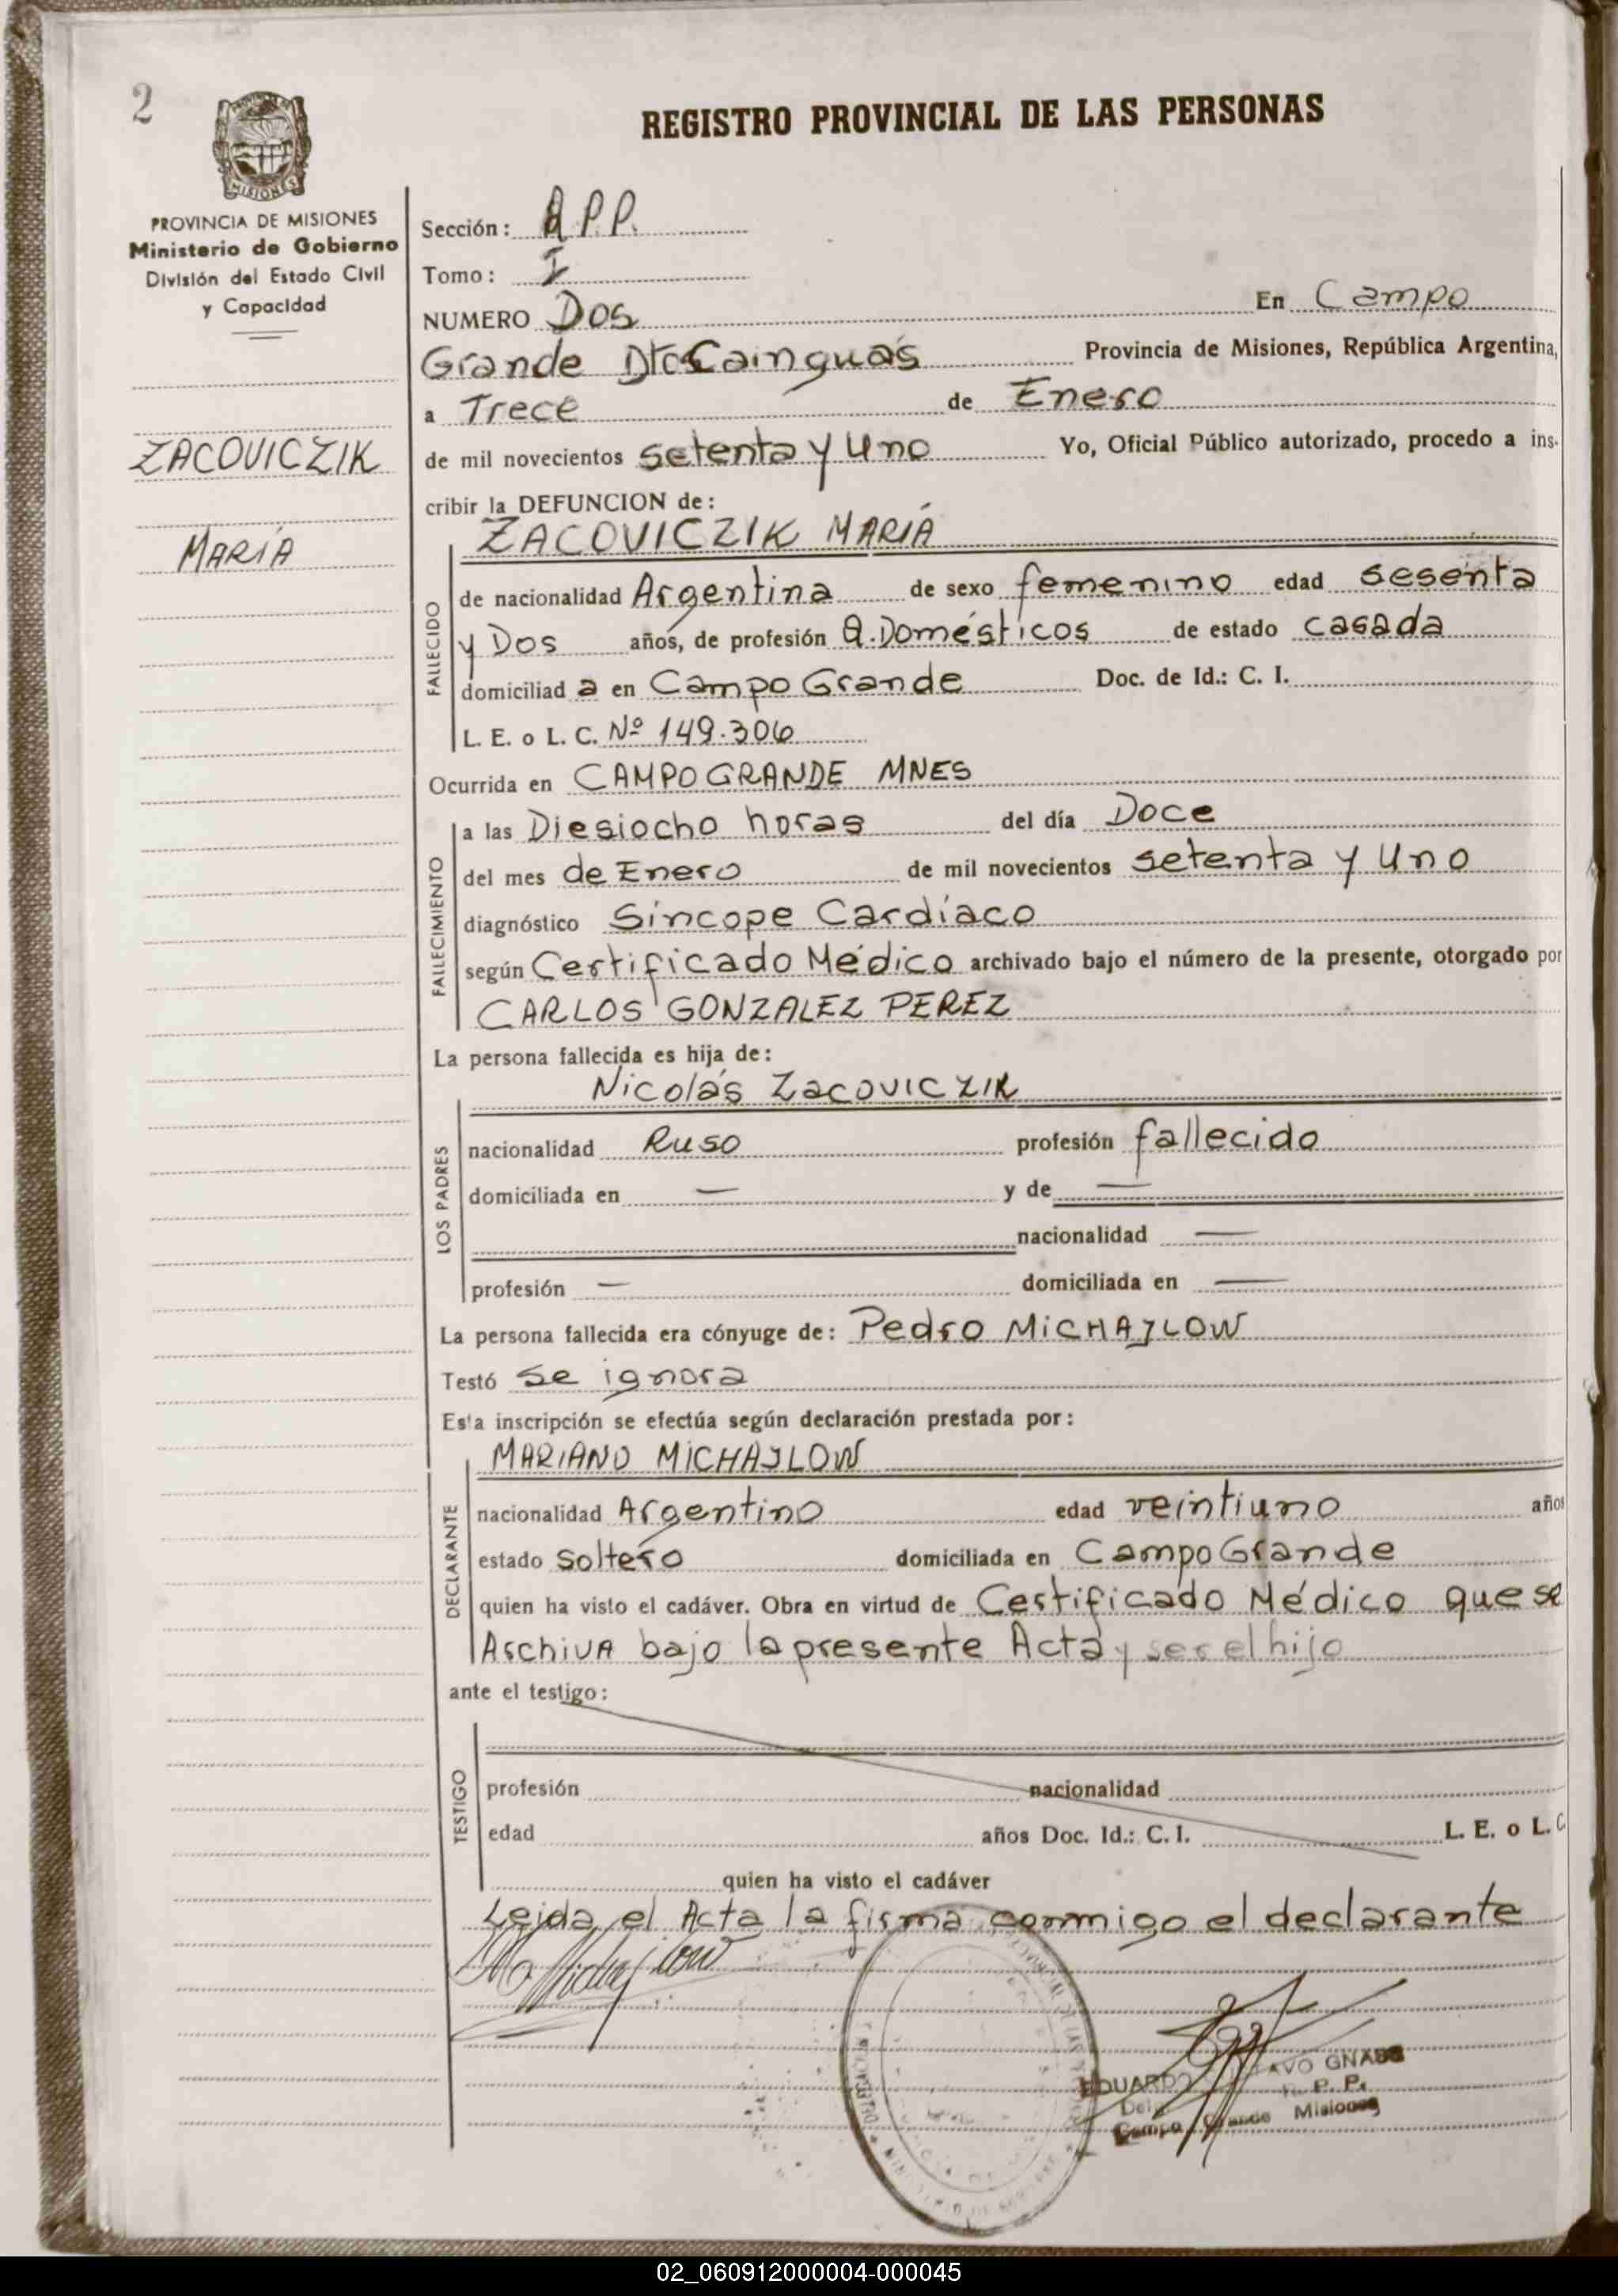 2
MISIONES
REGISTRO PROVINCIAL DE LAS PERSONAS
PROVINCIA DE MISIONES
Ministerio de Gobierno
División del Estado Civil
y Capacidad
ZACOVICZIK
MARÍA
Sección: R.P.P.
Tomo: I
NUMERO Dos En Campo
Grande Dto Cainguás Provincia de Misiones, República Argentina,
a Trece de Enero
de mil novecientos setenta y Uno Yo, Oficial Público autorizado, procedo a ins-
cribir la DEFUNCION de:
ZACOVICZIK MARÍA
FALLECIDO
de nacionalidad Argentina de sexo femenino edad sesenta
y Dos años, de profesión Q.Domésticos de estado casada
domiciliad a en Campo Grande Doc. de Id.: C. I.
L. E. o L. C. Nº 149.306
Ocurrida en CAMPO GRANDE MNES
FALLECIMIENTO
a las Diesiocho horas del día Doce
del mes de Enero de mil novecientos setenta y Uno
diagnóstico Síncope Cardíaco
según Certificado Médico archivado bajo el número de la presente, otorgado por
CARLOS GONZALEZ PEREZ
La persona fallecida es hija de:
Nicolás Zacoviczik
LOS PADRES
nacionalidad Ruso profesión fallecido
domiciliada en — y de —
nacionalidad —
profesión — domiciliada en —
La persona fallecida era cónyuge de: Pedro MiCHAJLOW
Testó se ignora
Esta inscripción se efectúa según declaración prestada por:
MARIANO MiCHAJLOW
DECLARANTE
nacionalidad Argentino edad veintiuno años
estado soltero domiciliada en Campo Grande
quien ha visto el cadáver. Obra en virtud de Certificado Médico que se
Archiva bajo la presente Acta y ser el hijo
ante el testigo:
TESTIGO
profesión nacionalidad
edad años Doc. Id.: C. I. L. E. o L. C
quien ha visto el cadáver
Leida el Acta la firma conmigo el declarante
M. Michajlow
EDUARDO AVO GNASS
Del R. P. P.
Campo Grande Misiones
02_060912000004-000045